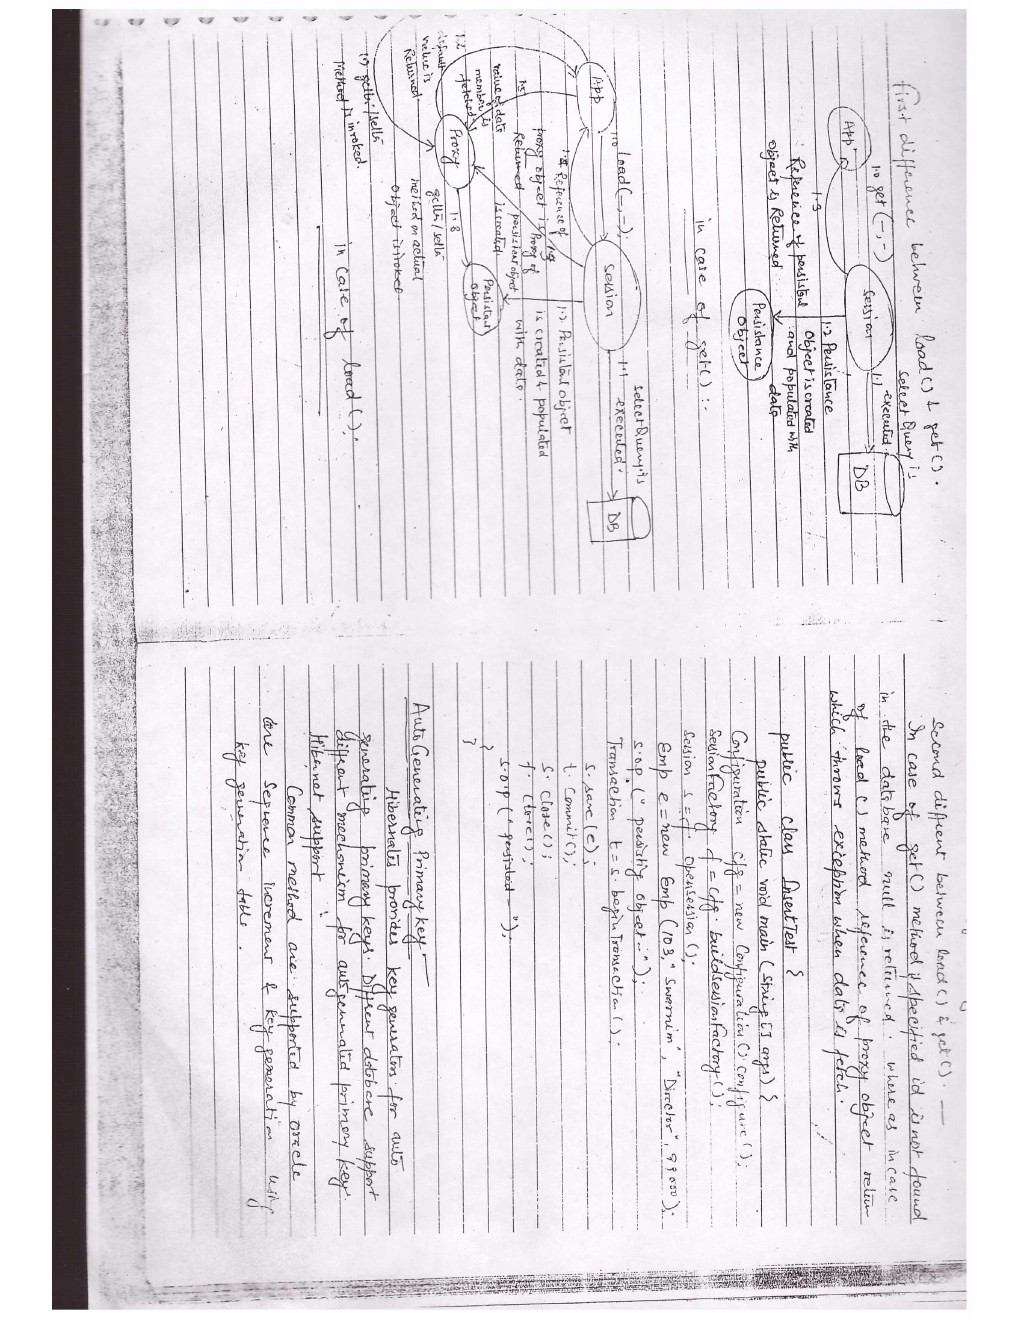 first difference between load() & get().
1.0 get(—,-)
Session
select Query is
executed.
1.1
DB
App
1.3
Reference of persistent
object is Returned
1.2 Persistance
Object is created
and populated with
data
Persistance
Object
in case of get() :-
1.0
Load(—,—);
App
Session
1.1
select Query is
executed.
DB
1.4 Reference of
proxy object is
Returned
Proxy of
persistant object
is created.
1.2 Persistant object
is created & populated
with data.
Persistant
object
1.5
value of data
member is
fetched
Proxy
1.8
getter/setter
method on actual
object is invoked
default
value is
Returned.
getter/setter
Method is invoked.
in case of load().
Second diffrent between load() & get(). —
In case of get() method if specified id is not found
in the database null is returned. where as in case
of load() method reference of proxy object return
which throws exception when data is fetch.
public class InsertTest {
public static void main (String [] args) {
Configuration cfg = new Configuration().configure();
SessionFactory f = cfg. buildSessionFactory();
Session s = f. openSession();
Emp e = new Emp (103, "Swarnim", "Director", 99000);
s.o.p (" persisting object—");
Transaction t = s. beginTransaction();
s. save(e);
t. Commit();
s. close();
f. close();
s.o.p (" persisted —");
}
}
Auto Generating Primary key —
Hibernates provides key generators for auto
generating primary keys. Diffrent database support
diffrent mechanism for autogenerated primary key.
Hibernet support :
Common method are supported by oracle
are Sequence increment & key generation using
key generation table.